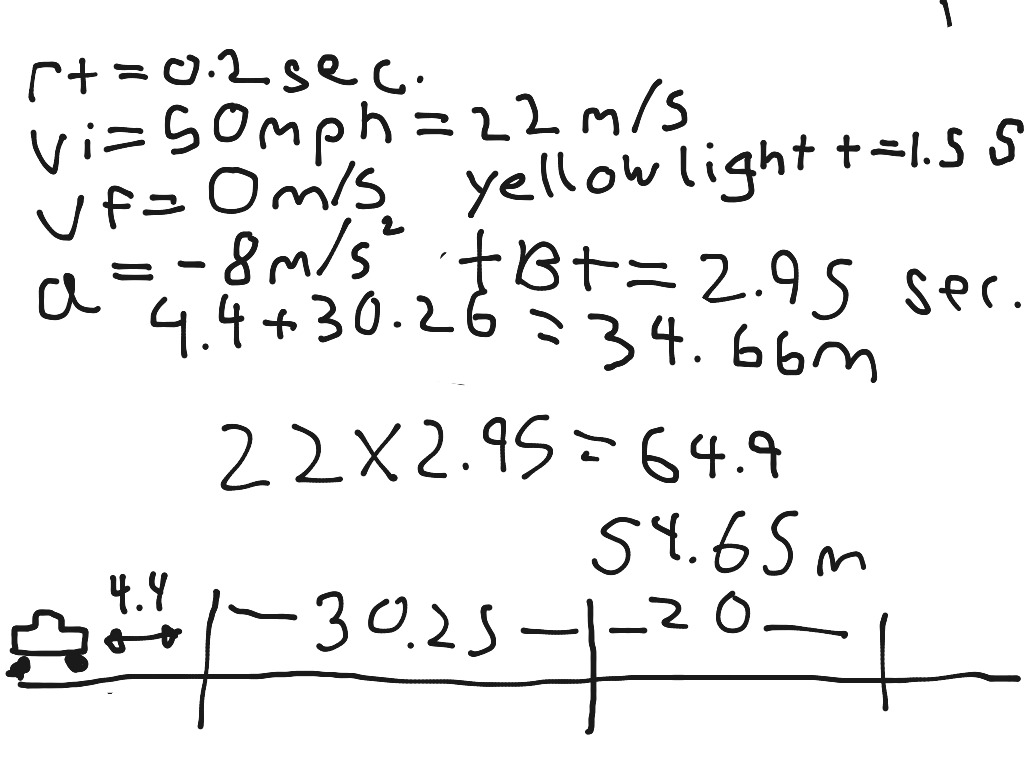 rt = 0.2 sec.
vi = 50mph = 22 m/s
vf = 0 m/s yellow light t = 1.5 s
a = -8m/s² tBt = 2.95 sec.
4.4 + 30.26 = 34.66m
22 x 2.95 = 64.9
54.65 m
4.4 30.25 20